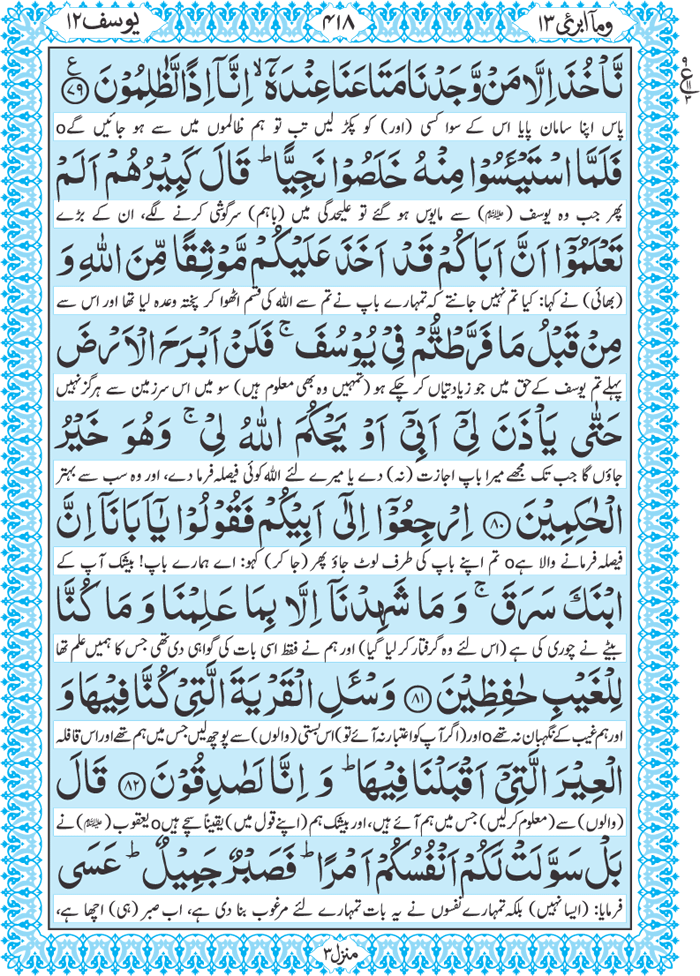 وماۤ ابرئ ١٣
٤١٨
یوسف ١٢
نَّاْخُذَ اِلَّا مَنْ وَّجَدْنَا مَتَاعَنَا عِنْدَهٗۤ ۙ اِنَّاۤ اِذًا لَّظٰلِمُوْنَ ﴿۷۹﴾ ع
پاس اپنا سامان پایا اس کے سوا کسی (اور) کو پکڑ لیں تب تو ہم ظالموں میں سے ہو جائیں گےo
فَلَمَّا اسْتَيْـَٔسُوْا مِنْهُ خَلَصُوْا نَجِيًّا ؕ قَالَ كَبِيْرُهُمْ اَلَمْ
پھر جب وہ یوسف (علیہ السلام) سے مایوس ہو گئے تو علیحدگی میں (باہم) سرگوشی کرنے لگے، ان کے بڑے
تَعْلَمُوْۤا اَنَّ اَبَاكُمْ قَدْ اَخَذَ عَلَيْكُمْ مَّوْثِقًا مِّنَ اللّٰهِ وَ
(بھائی) نے کہا: کیا تم نہیں جانتے کہ تمہارے باپ نے تم سے اللہ کی قسم اٹھوا کر پختہ وعدہ لیا تھا اور اس سے
مِنْ قَبْلُ مَا فَرَّطْتُّمْ فِيْ يُوْسُفَ ۚ فَلَنْ اَبْرَحَ الْاَرْضَ
پہلے تم یوسف کے حق میں جو زیادتیاں کر چکے ہو (تمہیں وہ بھی معلوم ہیں) سو میں اس سرزمین سے ہرگز نہیں
حَتّٰى يَاْذَنَ لِيْۤ اَبِيْۤ اَوْ يَحْكُمَ اللّٰهُ لِيْ ۚ وَهُوَ خَيْرُ
جاؤں گا جب تک مجھے میرا باپ اجازت (نہ) دے یا میرے لئے اللہ کوئی فیصلہ فرما دے، اور وہ سب سے بہتر
الْحٰكِمِيْنَ ﴿۸۰﴾ اِرْجِعُوْۤا اِلٰۤى اَبِيْكُمْ فَقُوْلُوْا يٰۤاَبَانَاۤ اِنَّ
فیصلہ فرمانے والا ہےo تم اپنے باپ کی طرف لوٹ جاؤ پھر (جا کر) کہو: اے ہمارے باپ! بیشک آپ کے
ابْنَكَ سَرَقَ ۚ وَ مَا شَهِدْنَاۤ اِلَّا بِمَا عَلِمْنَا وَ مَا كُنَّا
بیٹے نے چوری کی ہے (اس لئے وہ گرفتار کر لیا گیا) اور ہم نے فقط اسی بات کی گواہی دی تھی جس کا ہمیں علم تھا
لِلْغَيْبِ حٰفِظِيْنَ ﴿۸۱﴾ وَسْـَٔلِ الْقَرْيَةَ الَّتِيْ كُنَّا فِيْهَا وَ
اور ہم غیب کے نگہبان نہ تھےo اور (اگر آپ کو اعتبار نہ آئے تو) اس بستی (والوں) سے پوچھ لیں جس میں ہم تھے اور اس قافلہ
الْعِيْرَ الَّتِيْۤ اَقْبَلْنَا فِيْهَا ؕ وَ اِنَّا لَصٰدِقُوْنَ ﴿۸۲﴾ قَالَ
(والوں) سے (معلوم کر لیں) جس میں ہم آئے ہیں، اور بیشک ہم (اپنے قول میں) یقینًا سچے ہیںo یعقوب (علیہ السلام) نے
بَلْ سَوَّلَتْ لَكُمْ اَنْفُسُكُمْ اَمْرًا ؕ فَصَبْرٌ جَمِيْلٌ ؕ عَسَى
فرمایا: (ایسا نہیں) بلکہ تمہارے نفسوں نے یہ بات تمہارے لئے مرغوب بنا دی ہے، اب صبر (ہی) اچھا ہے،
منزل ٣